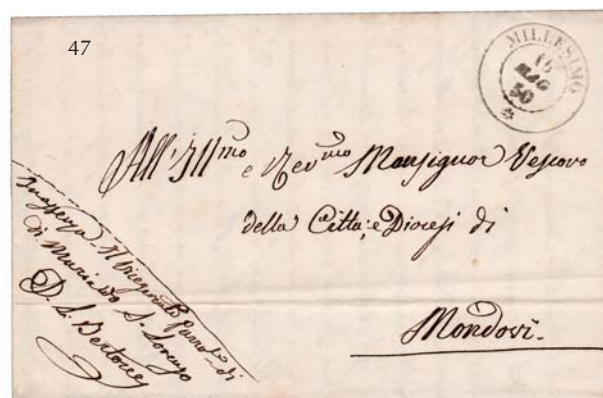 47
MILLESIMO
16
MAG
50
All'Ill.mo e Rev.mo Monsignor Vescovo
della Città, e Diocesi di
Mondovì.
Il Vicegerente Parroc.le di
di Murialdo S. Lorenzo
D. S. Bertone